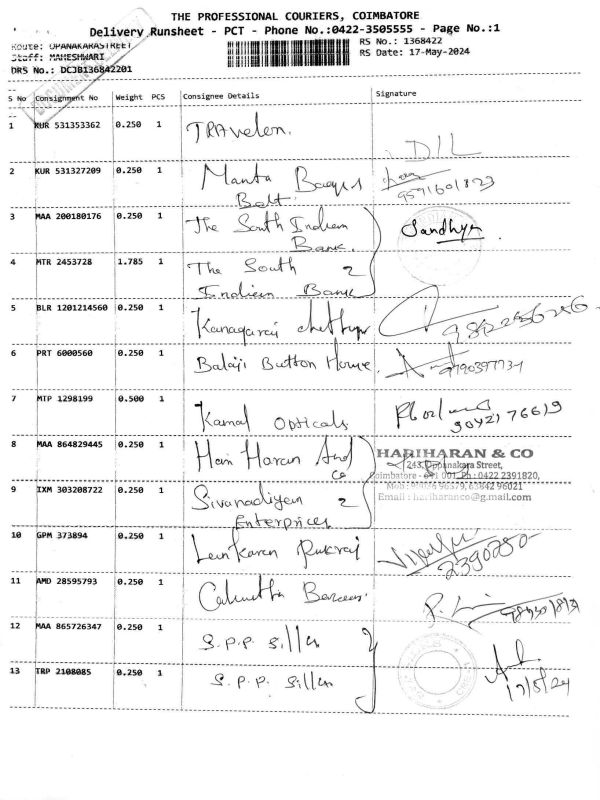 THE PROFESSIONAL COURIERS, COIMBATORE
Delivery Runsheet - PCT - Phone No.:0422-3505555 - Page No.:1
Route: OPANAKARASTREET
RS No.: 1368422
Staff: MAHESHWARI
RS Date: 17-May-2024
DRS No.: DCJB136842201
S No Consignment No Weight PCS Consignee Details Signature
1 KUR 531353362 0.250 1 TRAvelon.
DIL
2 KUR 531327209 0.250 1 Manta Bags
Belt.
9591601823
3 MAA 200180176 0.250 1 The South Indian
Bank.
Sandhya
4 MTR 2453728 1.785 1 The South 2
Indian Bank
5 BLR 1201214560 0.250 1 Kanagaraj chettiyar
6 PRT 6000560 0.250 1 Balaji Button House.
7 MTP 1298199 0.500 1 Kamal Opticals
8 MAA 864829445 0.250 1 Hari Haran And
Co
HARIHARAN & CO
243, Oppanakara Street,
Coimbatore - 641 001. Ph : 0422 2391820,
Email : hariharanco@g.mail.com
9 IXM 303208722 0.250 1 Sivanadiyan 2
Enterprices
10 GPM 373894 0.250 1 Lunkaran
2390280
11 AMD 28595793 0.250 1 Calcutta
12 MAA 865726347 0.250 1 S.P.P. Silks
13 TRP 2108085 0.250 1 S.P.P. Silks
17/5/24